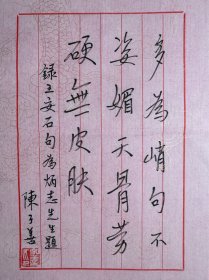 多為峭句不
姿媚天骨勞
硬無皮膚
録王安石句為炳志先生題
陳子善